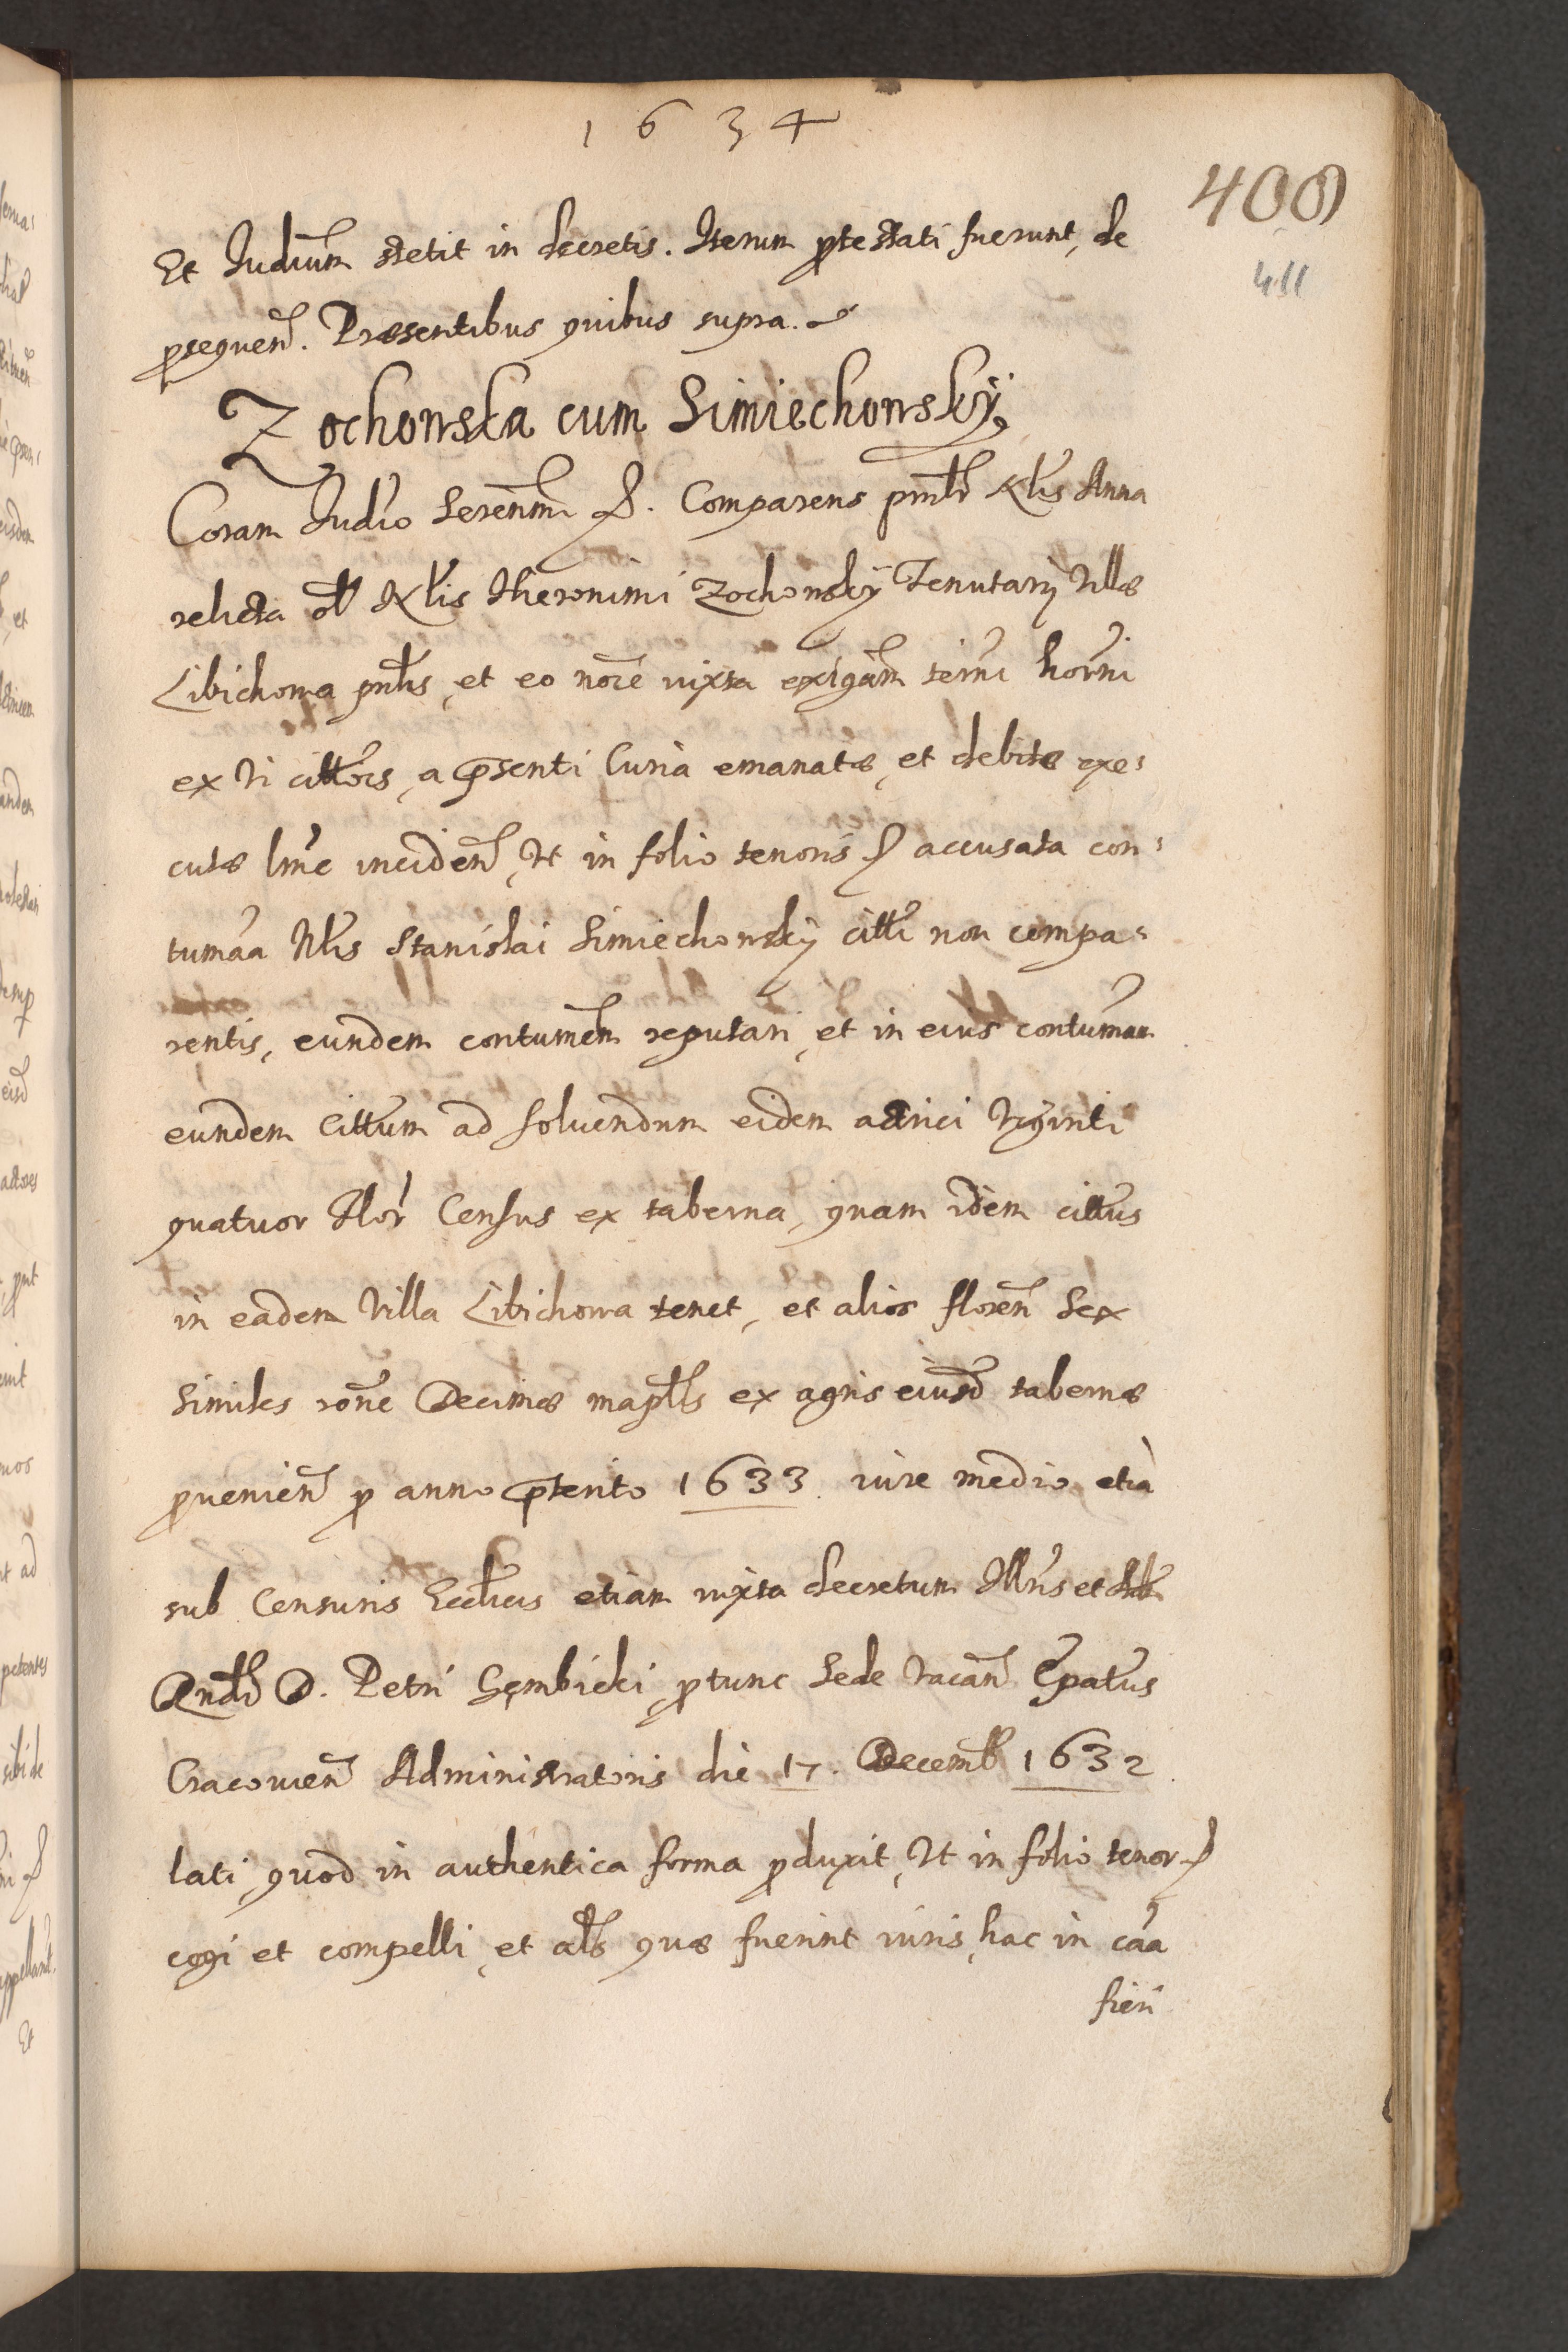 1634
400
411
Et Iudium stetit in decretis. Iterum ptestati fuerunt, de
psequen. Præsentibus quibus supra.
Zochowska cum Simiechowskÿ
Coram Iudio Serenmi &. Comparens pnlr Nlis Anna
relicta ol Nlis Hieronimi Zochowskÿ Tenutarij Villæ
Libichowa pnlis, et eo noïe iuxta exigäm termi horni
ex vi cittöis, a pñsenti Curia emanatæ, et debitæ exe:
cutæ lme inciden, Vt in folio tenoris & accusata con:
tumäa Nlis Stanislai Simiechowskÿ citti non compa:
rentis, eundem contumem reputari, et in eius contumam
eundem Cittum ad soluendum eidem actrici Viginti
quatuor Flor Census ex taberna, quam idem cittus
in eadem Villa Libichowa tenet, et alios floren Sex
Similes röne Decimæ maplis ex agris eiusd tabernæ
puenien p anno pterito 1633 iure medio etià
sub Censuris Ecclicis etiam iuxta decretum Illris et
Rndi D. Petri Gembicki ptunc Sede Vacan Epatus
Cracouien Administratoris die 17. Decemb 1632
lati, quod in authentica forma pduxit, Vt in folio tenor &
cogi et compelli, et als quæ fuerint iuris, hac in cäa
fieri